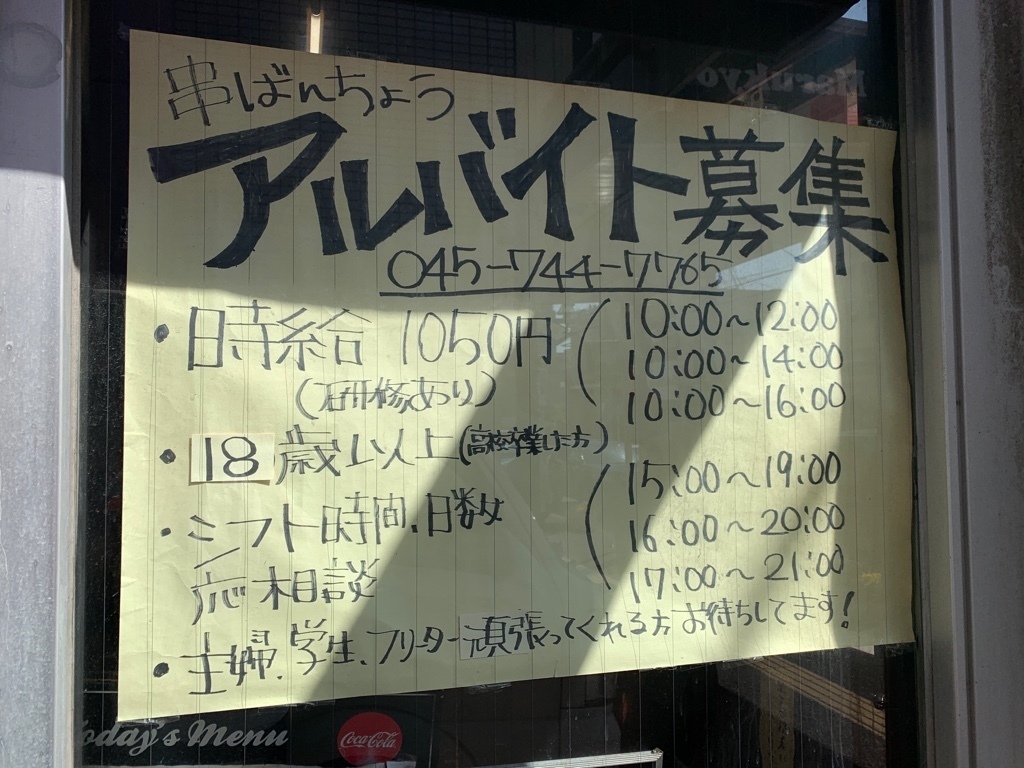 串ばんちょう
アルバイト募集
045-744-7765
・時給 1050円
(研修あり)
10:00～12:00
10:00～14:00
10:00～16:00
・18歳以上(高校卒業した方)
15:00～19:00
16:00～20:00
17:00～21:00
・シフト時間、日数
応相談
・主婦、学生、フリーター頑張ってくれる方お待ちしてます!
Marukyo
Today's Menu
Coca-Cola